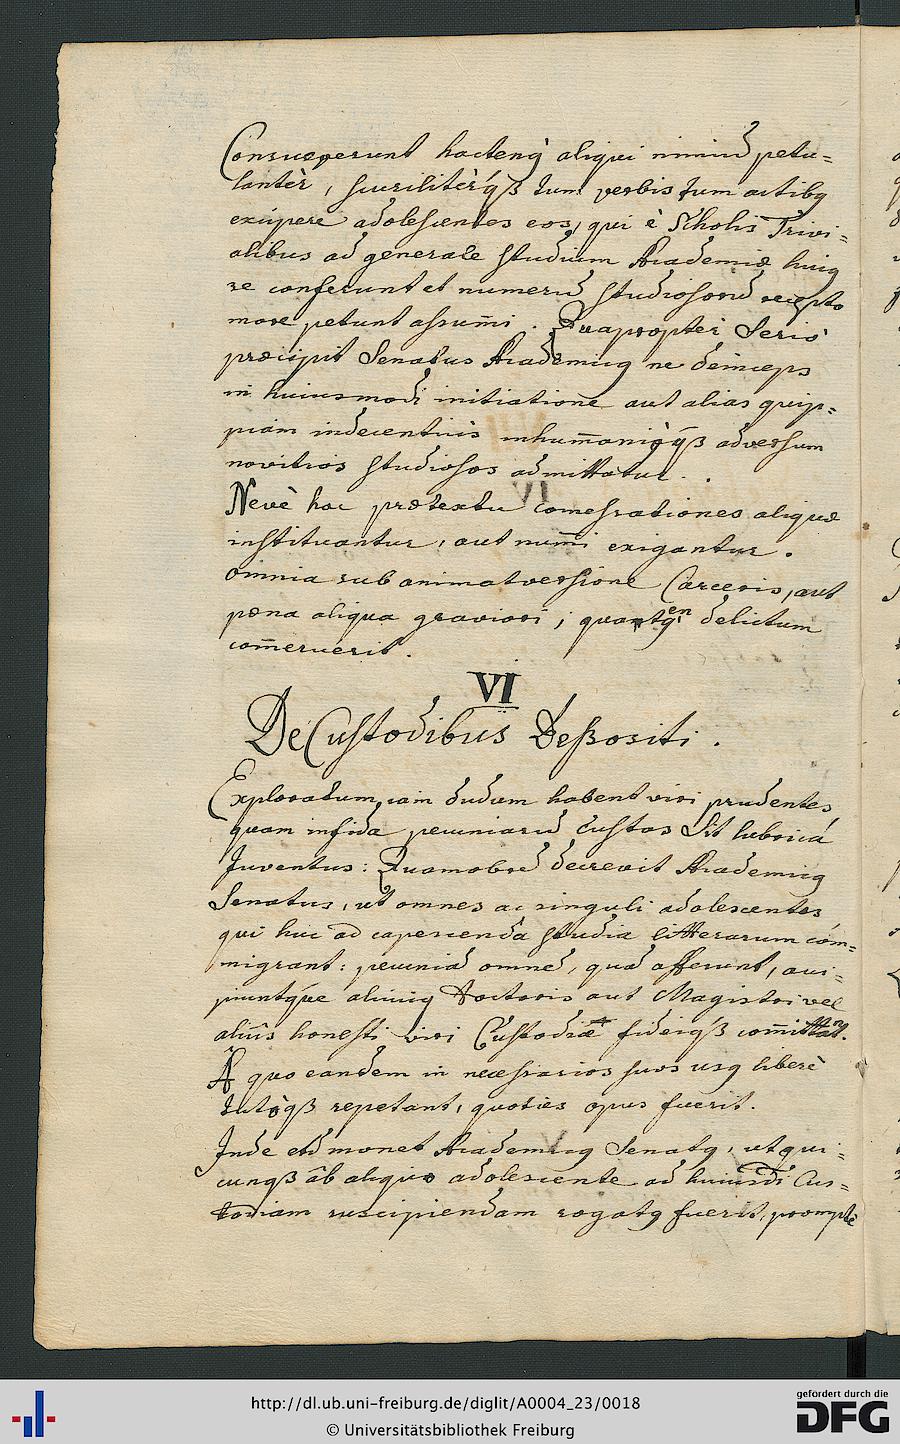 Consueverunt hactenq̀ aliqui nimiū petu=
lantèr, scuriliterq́ꝫ tum verbis tum actibq
excipere adolescentes eos, qui è Scholis Trivi=
alibus ad generale studium Academiæ huiq
se conferunt et numerū studiosorū recepto
more petunt assum̄i. Quapropter Seriò
præcipit Senatus Academicq ne deinceps
in huiusmodi initiatione aut alias quip=
piam indecentius inhumaniq̀q́ꝫ adversum
novitios studiosos admittatur.
Nevè hoc prætextu comessationes aliquæ
instituantur, aut num̄i exigantur.
omnia sub animatversione Carceris, aut
pœna aliqua graviori; delictum
com̄eruerit.
VI
De Custodibus Depositi.
Exploratum iam dudum habent viri prudentes
quam infida pecuniarū custos Sit lubrica
Juventus: Quamobrē decrevit Academicq
Senatus, ut omnes ac singuli adolescentes
qui huc ad capescenda studia litterarum com=
migrant: pecuniā omnē, quā afferunt, acci=
piuntq́ue alicuiq Doctoris aut Magistri vel
alius honesti viri Custodiæ fideiqꝫ com̄ittant.
A quo eandem in necessarios suos usq liberè
tutòqꝫ repetant, quoties opus fuerit.
Inde etiā monet Academicq Senatq, ut qui=
cunqꝫ âb aliquo adolescente ad huiusdi Cus=
todiam suscipiendam rogatq fuerit, promptè
http://dl.ub.uni-freiburg.de/diglit/A0004_23/0018
© Universitätsbibliothek Freiburg
gefördert durch die
DFG